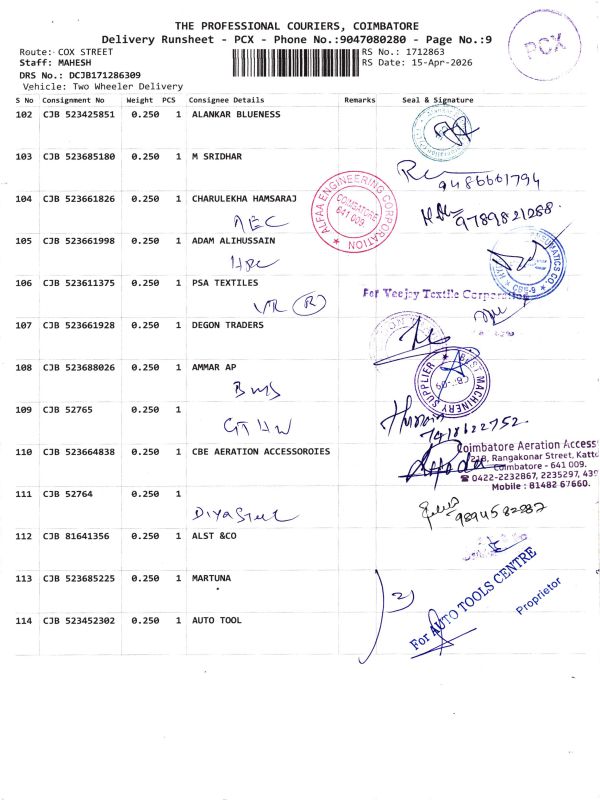 THE PROFESSIONAL COURIERS, COIMBATORE
Delivery Runsheet - PCX - Phone No.:9047080280 - Page No.:9
PCX
Route: COX STREET
RS No.: 1712863
Staff: MAHESH
RS Date: 15-Apr-2026
DRS No.: DCJB171286309
Vehicle: Two Wheeler Delivery
S No Consignment No Weight PCS Consignee Details Remarks Seal & Signature
102 CJB 523425851 0.250 1 ALANKAR BLUENESS
103 CJB 523685180 0.250 1 M SRIDHAR
9486661794
104 CJB 523661826 0.250 1 CHARULEKHA HAMSARAJ
AEC
ALFAA ENGINEERING CORPORATION
COIMBATORE
641 009
9789821288.
105 CJB 523661998 0.250 1 ADAM ALIHUSSAIN
CBE-9
106 CJB 523611375 0.250 1 PSA TEXTILES
VR (R)
For Veejay Textile Corporation
107 CJB 523661928 0.250 1 DEGON TRADERS
108 CJB 523688026 0.250 1 AMMAR AP
BMS
MACHINERY SUPPLIER
109 CJB 52765 0.250 1
GTHW
Hussain
7418622752.
110 CJB 523664838 0.250 1 CBE AERATION ACCESSOROIES
Coimbatore Aeration Access
218, Rangakonar Street, Katto
Coimbatore - 641 009.
0422-2232867, 2235297, 439
Mobile : 81482 67660.
111 CJB 52764 0.250 1
Diya Steel
112 CJB 81641356 0.250 1 ALST &CO
113 CJB 523685225 0.250 1 MARTUNA
2)
For AUTO TOOLS CENTRE
Proprietor
114 CJB 523452302 0.250 1 AUTO TOOL